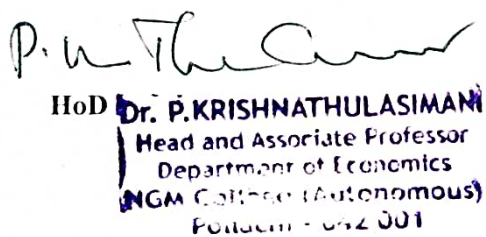 P.
HoD Dr. P.KRISHNATHULASIMANI
Head and Associate Professor
Department of Economics
NGM College (Autonomous)
Pollachi - 642 001